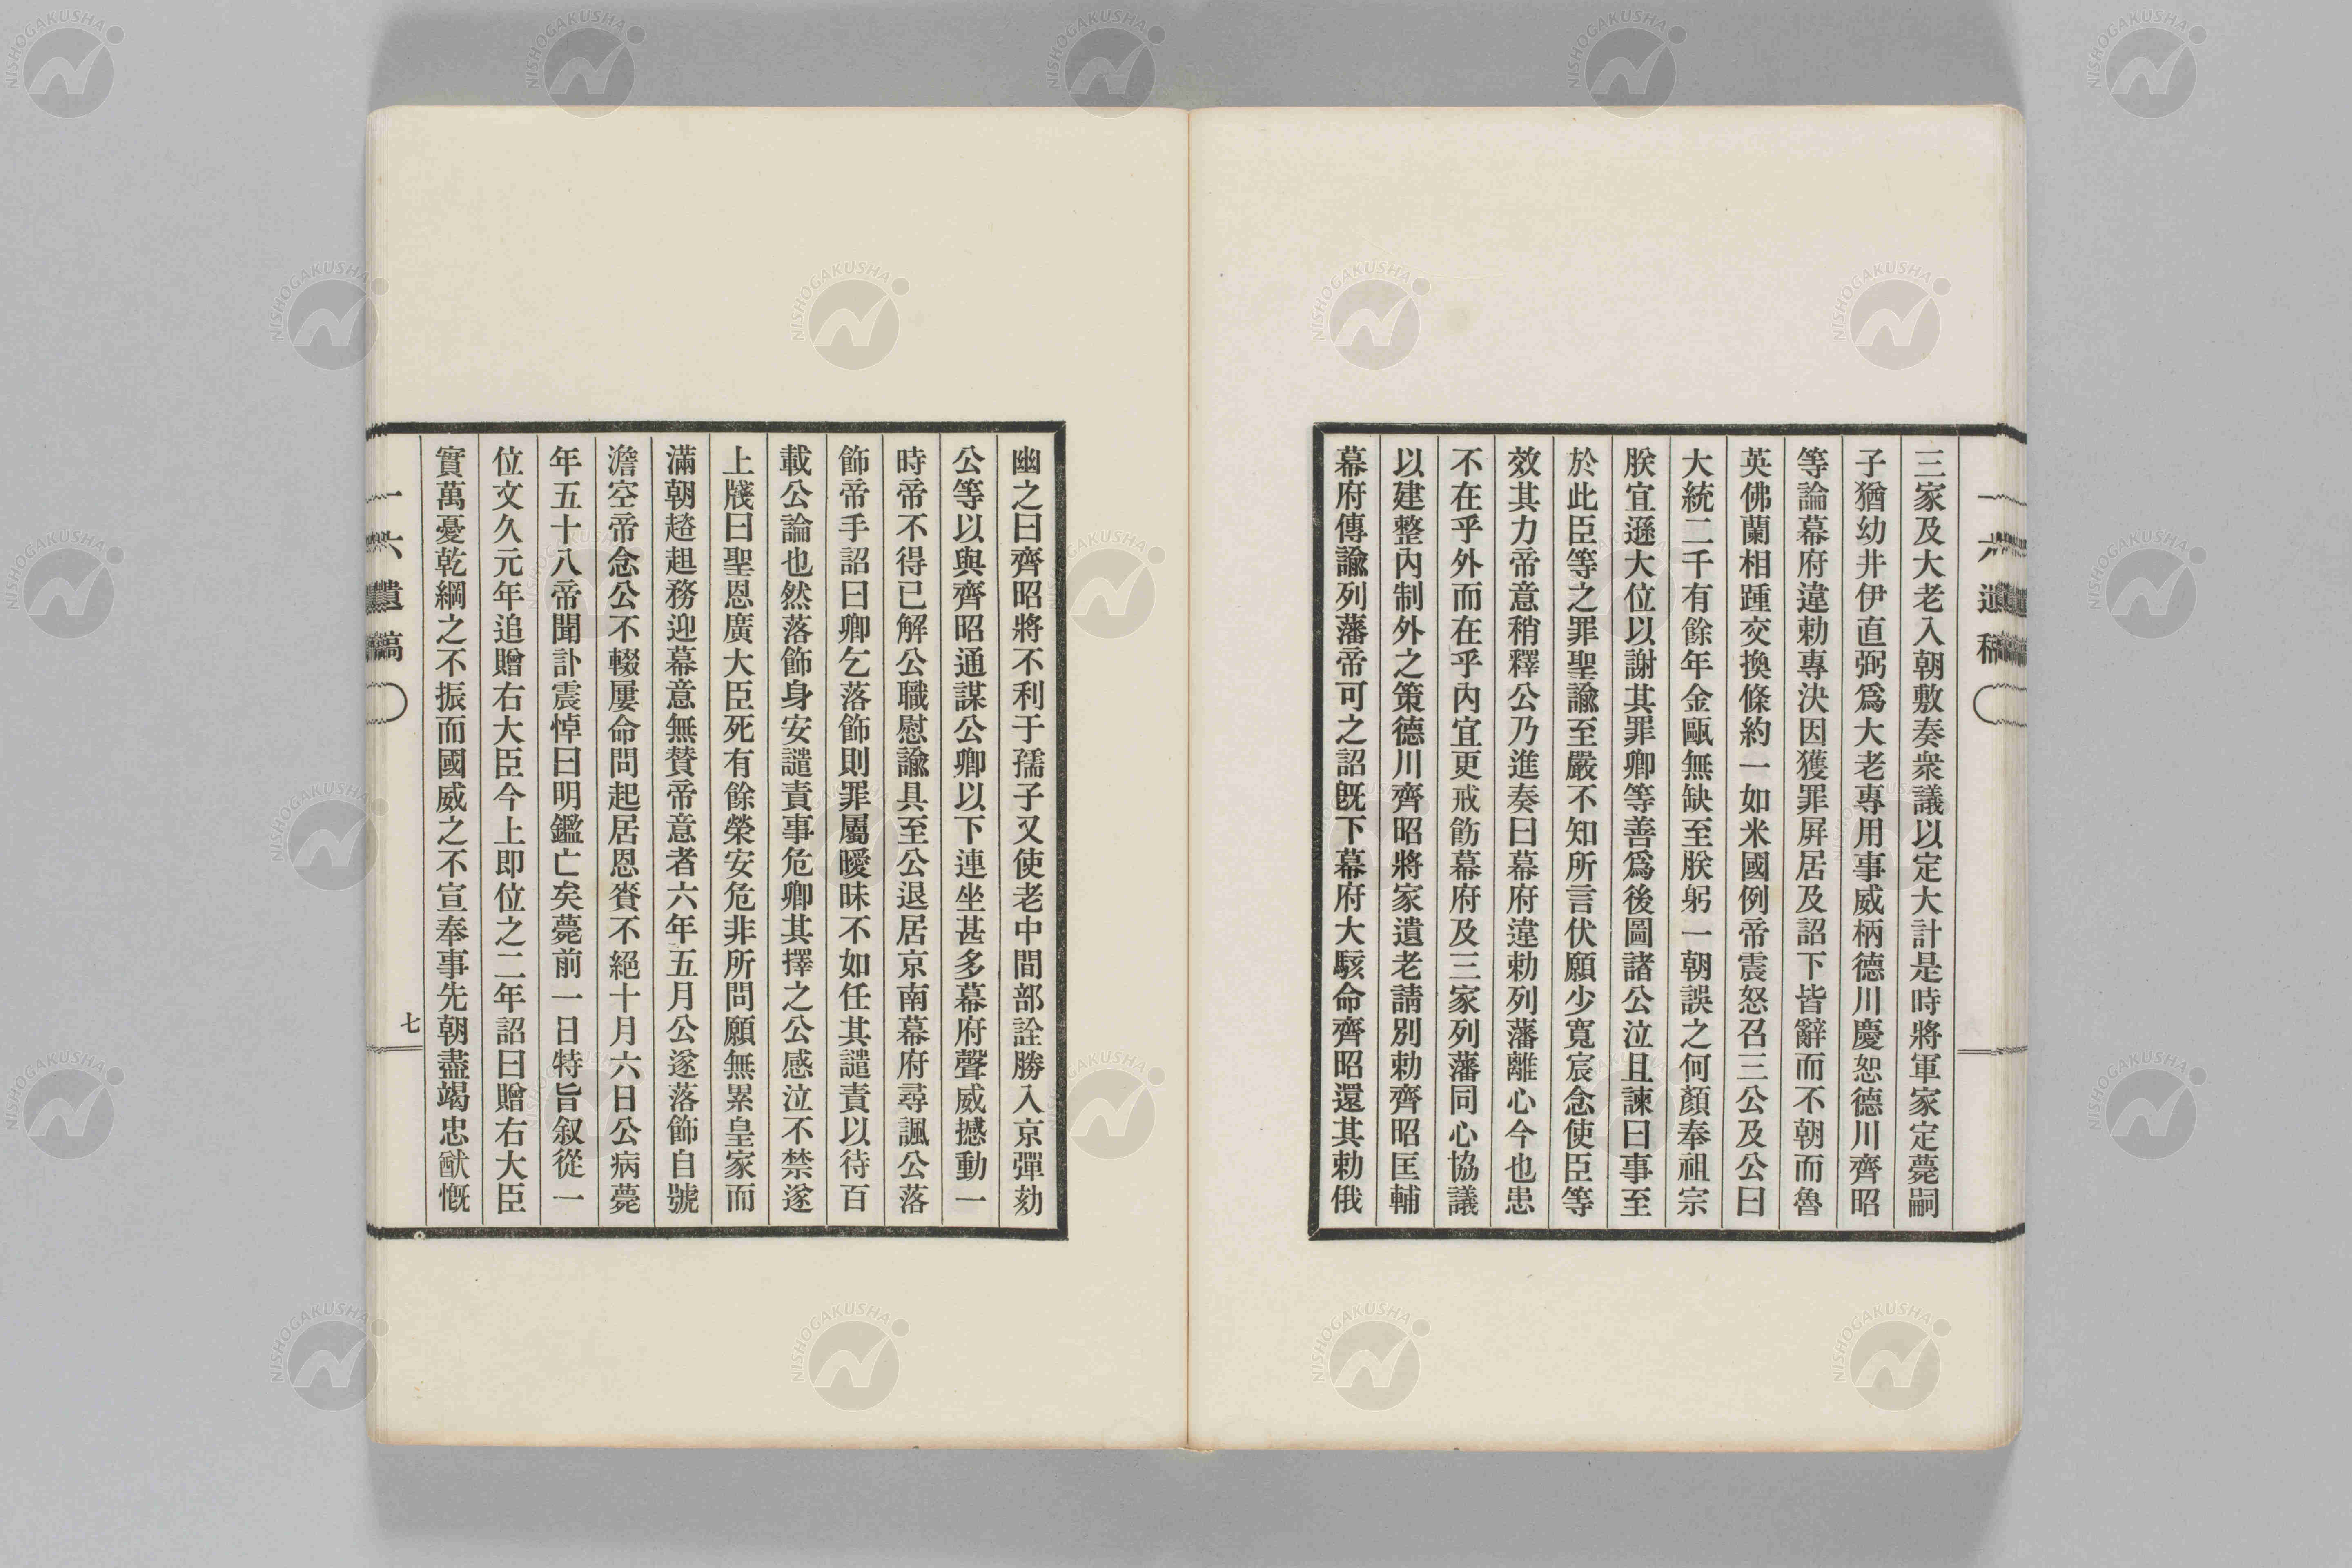 三家及大老入朝敷奏衆議以定大計是時將軍家定薨嗣
子猶幼井伊直弼爲大老專用事威柄德川慶恕德川齊昭
等論幕府違勅專決因獲罪屛居及詔下皆辭而不朝而魯
英佛蘭相踵交換條約一如米國例帝震怒召三公及公曰
大統二千有餘年金甌無缺至朕躬一朝誤之何顏奉祖宗
朕宜遜大位以謝其罪卿等善爲後圖諸公泣且諫曰事至
於此臣等之罪聖諭至嚴不知所言伏願少寬宸念使臣等
效其力帝意稍釋公乃進奏曰幕府違勅列藩離心今也患
不在乎外而在乎內宜更戒飭幕府及三家列藩同心協議
以建整內制外之策德川齊昭將家遺老請別勅齊昭匡輔
幕府傳諭列藩帝可之詔旣下幕府大駭命齊昭還其勅俄
一六遺稿
幽之曰齊昭將不利于孺子又使老中間部詮勝入京彈劾
公等以與齊昭通謀公卿以下連坐甚多幕府聲威撼動一
時帝不得已解公職慰諭具至公退居京南幕府尋諷公落
飾帝手詔曰卿乞落飾則罪屬曖昧不如任其譴責以待百
載公論也然落飾身安譴責事危卿其擇之公感泣不禁遂
上牋曰聖恩廣大臣死有餘榮安危非所問願無累皇家而
滿朝趦趄務迎幕意無贊帝意者六年五月公遂落飾自號
澹空帝念公不輟屢命問起居恩賚不絕十月六日公病薨
年五十八帝聞訃震悼曰明鑑亡矣薨前一日特旨叙從一
位文久元年追贈右大臣今上即位之二年詔曰贈右大臣
實萬憂乾綱之不振而國威之不宣奉事先朝盡竭忠猷慨
一六遺稿
七
NISHOGAKUSHA